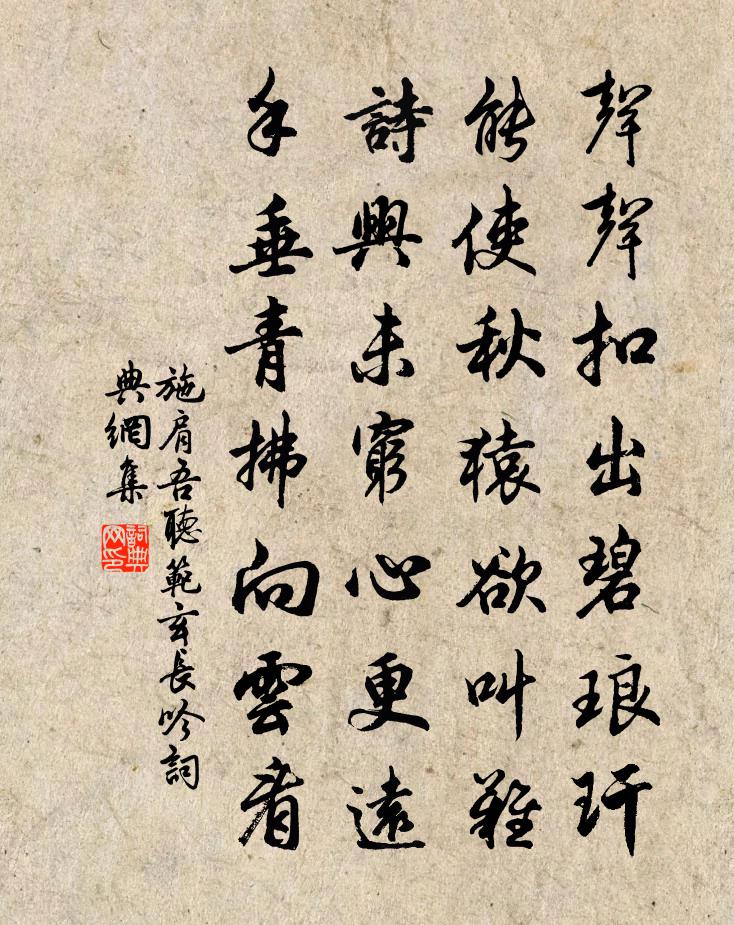 聲聲扣出碧琅玕
能使秋猿欲叫難
詩興未窮心更遠
手垂青拂向雲看
施肩吾聽範玄長吟詞
典網集
詞典网印